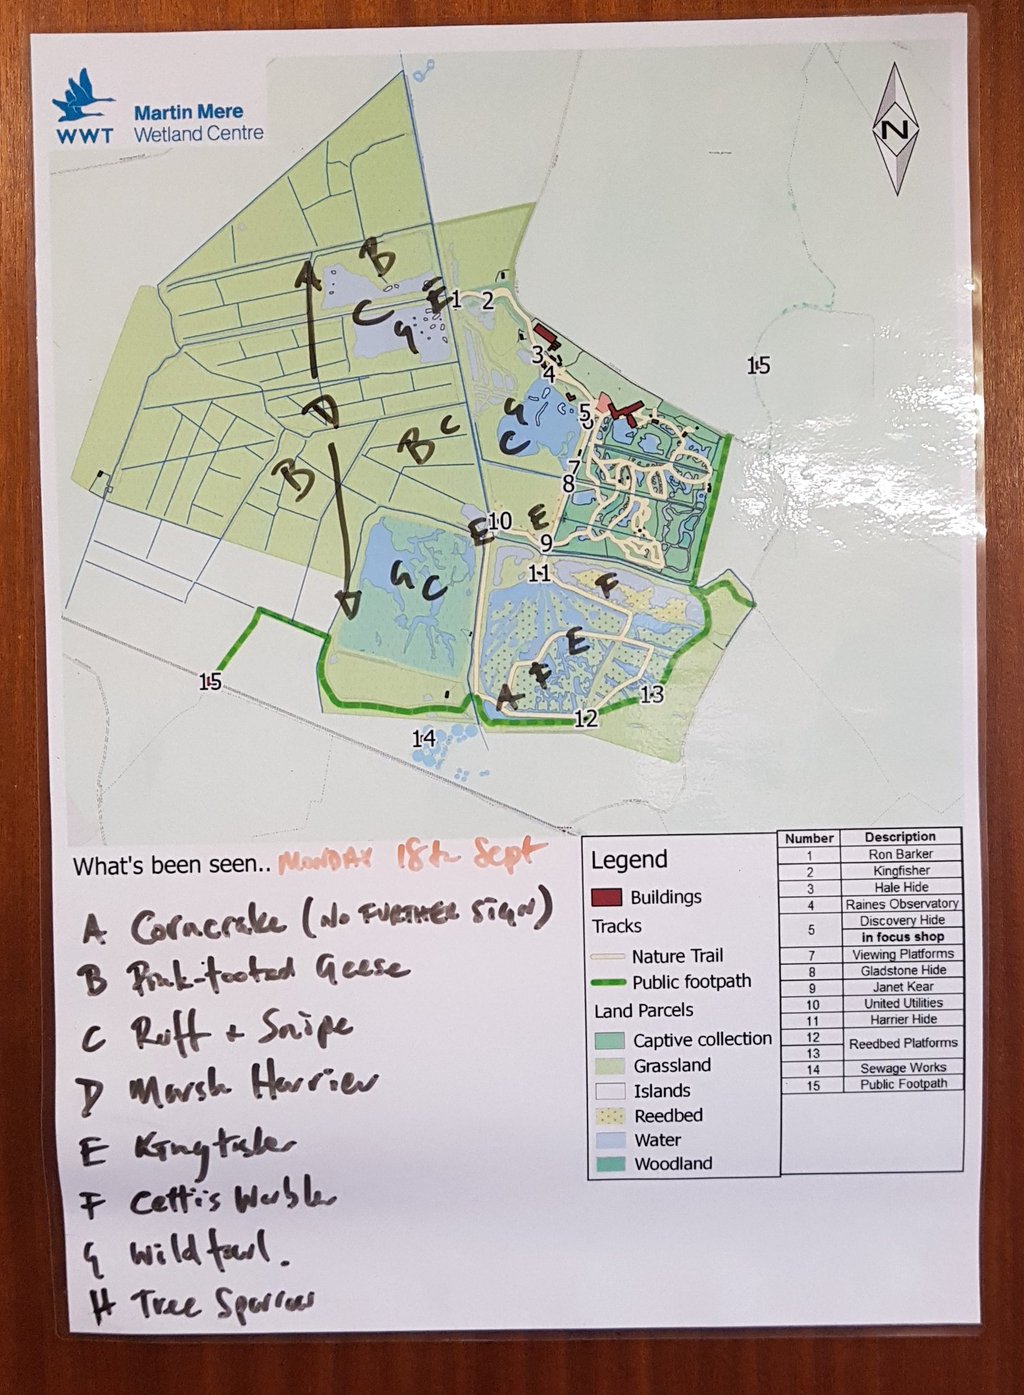 WWT
Martin Mere
Wetland Centre
N
B
E
1
2
C
G
3
4
15
D
G
C
5
B
C
B
7
8
E
10
E
9
11
G
C
F
E
F
A
15
13
12
14
What's been seen.. MONDAY 18th Sept
A Corncrake (NO FURTHER SIGN)
B Pink-footed Geese
C Ruff + Snipe
D Marsh Harrier
E Kingfisher
F Cetti's Warbler
G Wildfowl.
H Tree Sparrow
Legend
Buildings
Tracks
Nature Trail
Public footpath
Land Parcels
Captive collection
Grassland
Islands
Reedbed
Water
Woodland
Number Description
1 Ron Barker
2 Kingfisher
3 Hale Hide
4 Raines Observatory
5 Discovery Hide
in focus shop
7 Viewing Platforms
8 Gladstone Hide
9 Janet Kear
10 United Utilities
11 Harrier Hide
12 Reedbed Platforms
13
14 Sewage Works
15 Public Footpath